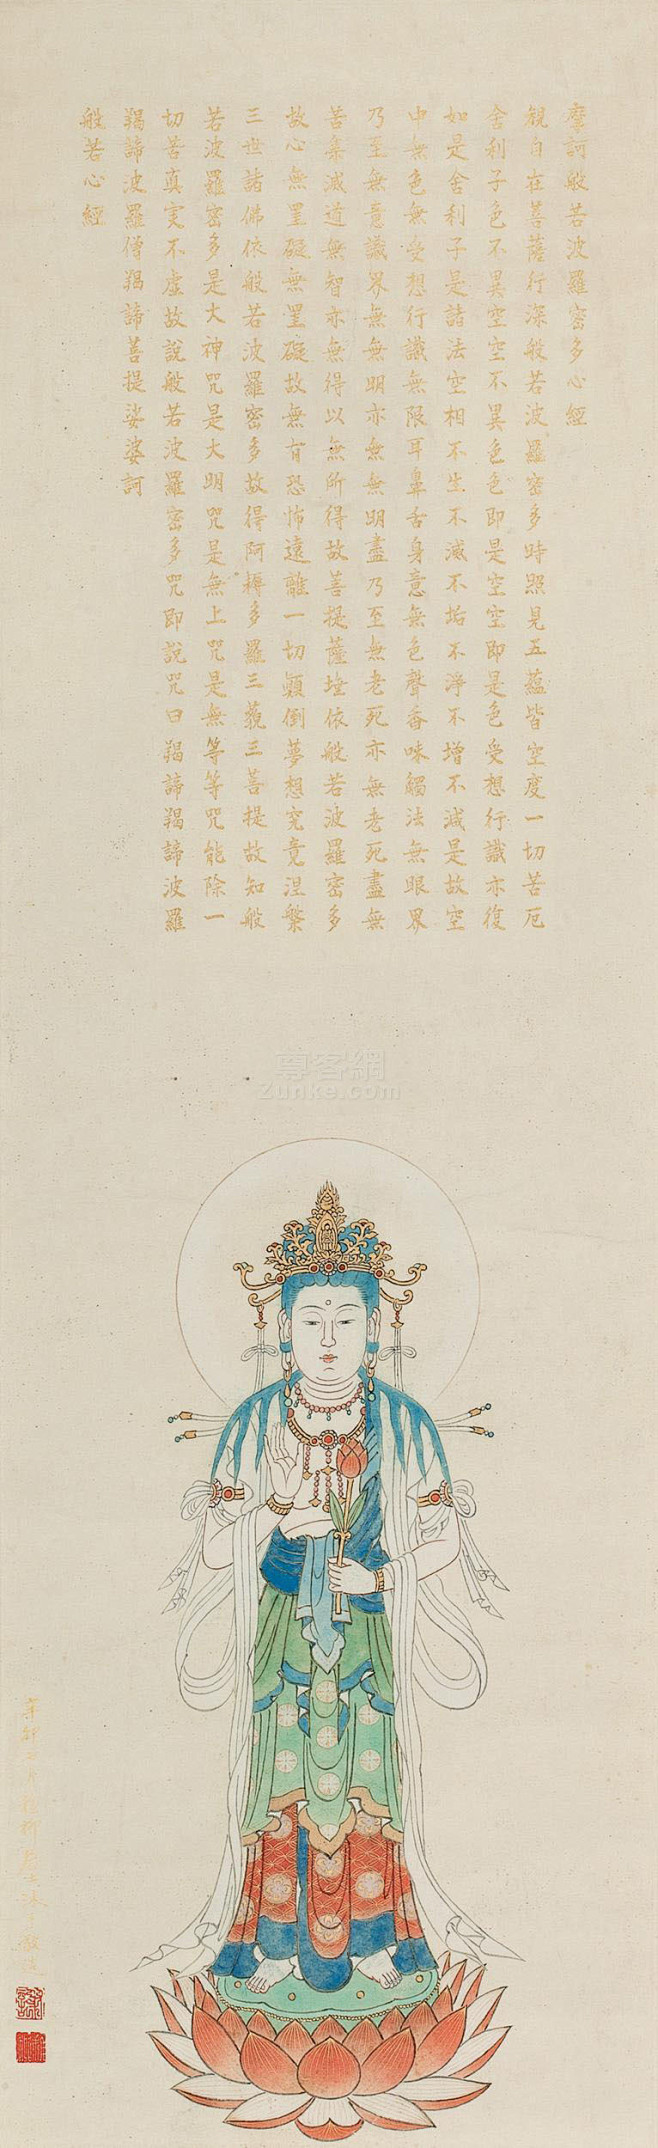 摩訶般若波羅密多心經
觀自在菩薩行深般若波羅密多時照見五蘊皆空度一切苦厄
舍利子色不異空空不異色色即是空空即是色受想行識亦復
如是舍利子是諸法空相不生不滅不垢不淨不增不減是故空
中無色無受想行識無限耳鼻舌身意無色聲香味觸法無眼界
乃至無意識界無無明亦無無明盡乃至無老死亦無老死盡無
苦集滅道無智亦無得以無所得故菩提薩埵依般若波羅密多
故心無罣礙無罣礙故無有恐怖遠離一切顛倒夢想究竟涅槃
三世諸佛依般若波羅密多故得阿耨多羅三藐三菩提故知般
若波羅密多是大神咒是大明咒是無上咒是無等等咒能除一
切苦真実不虛故說般若波羅密多咒即說咒曰羯諦羯諦波羅
羯諦波羅僧羯諦菩提娑婆訶
般若心經
尊客網
Zunke.com
辛卯